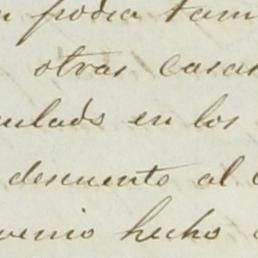 n podia tam
otras casas
ulado en los
descuento al
venio hecho